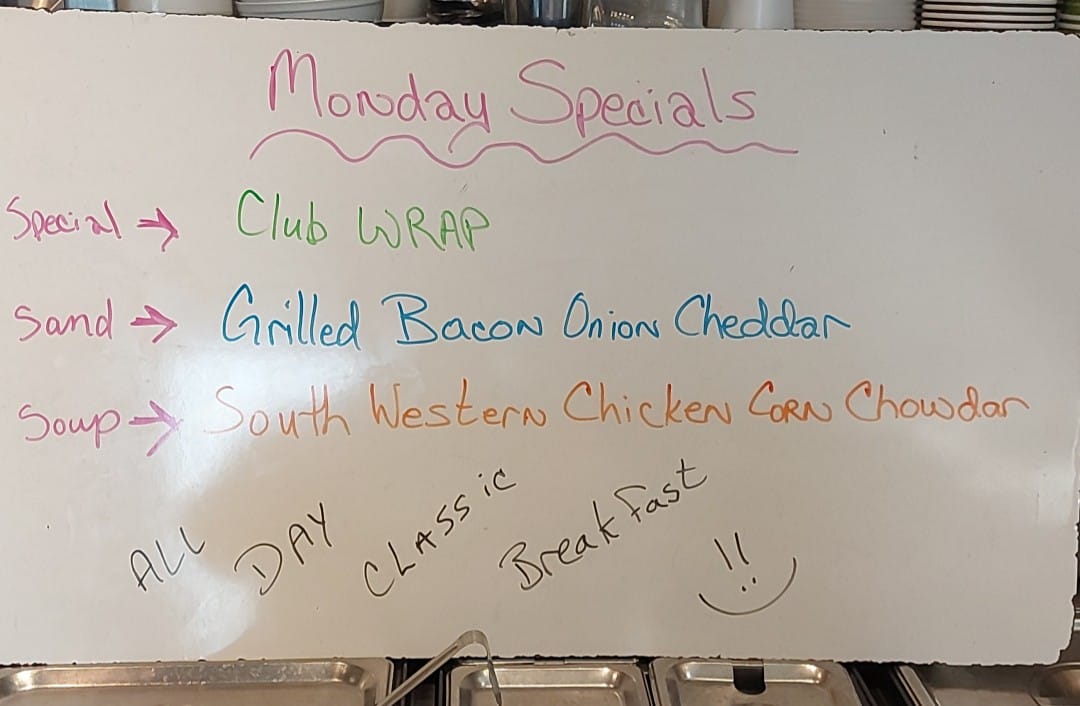 Monday Specials
Special → Club WRAP
Sand → Grilled Bacon Onion Cheddar
Soup → South Western Chicken Corn Chowdar
ALL DAY CLASSic Breakfast !!